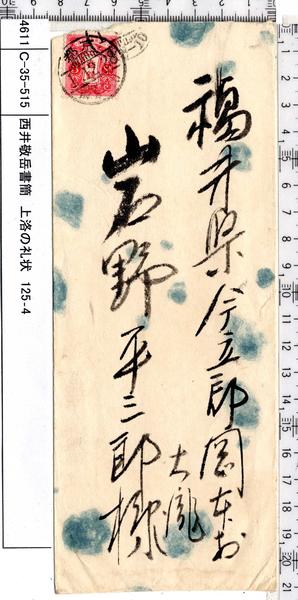 福井県今立郡岡本村
大瀧
岩野平三郎様
4611 C-35-515 西井敬岳書簡 上洛の礼状 125-4